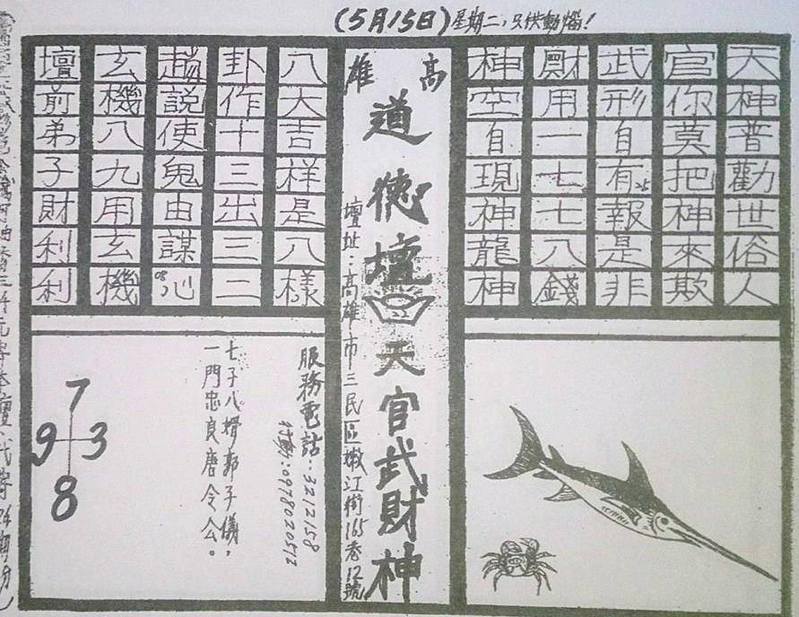 (5月15日)星期二，只供動惱！
天神普勸世俗人
官你莫把神來欺
武形自有報是非
財用一七七八錢
神空自現神龍神
高雄
道德壇
天官武財神
壇址：高雄市三民區嫩江街165巷12號
八大吉样是八樣
卦作十三出三二
趙說使鬼由謀心
玄機八九用玄機
壇前弟子財利利
服務電話：3212158
行動：0978020512
七子八婿郭子儀，
一門忠良唐令公。
7
9 3
8